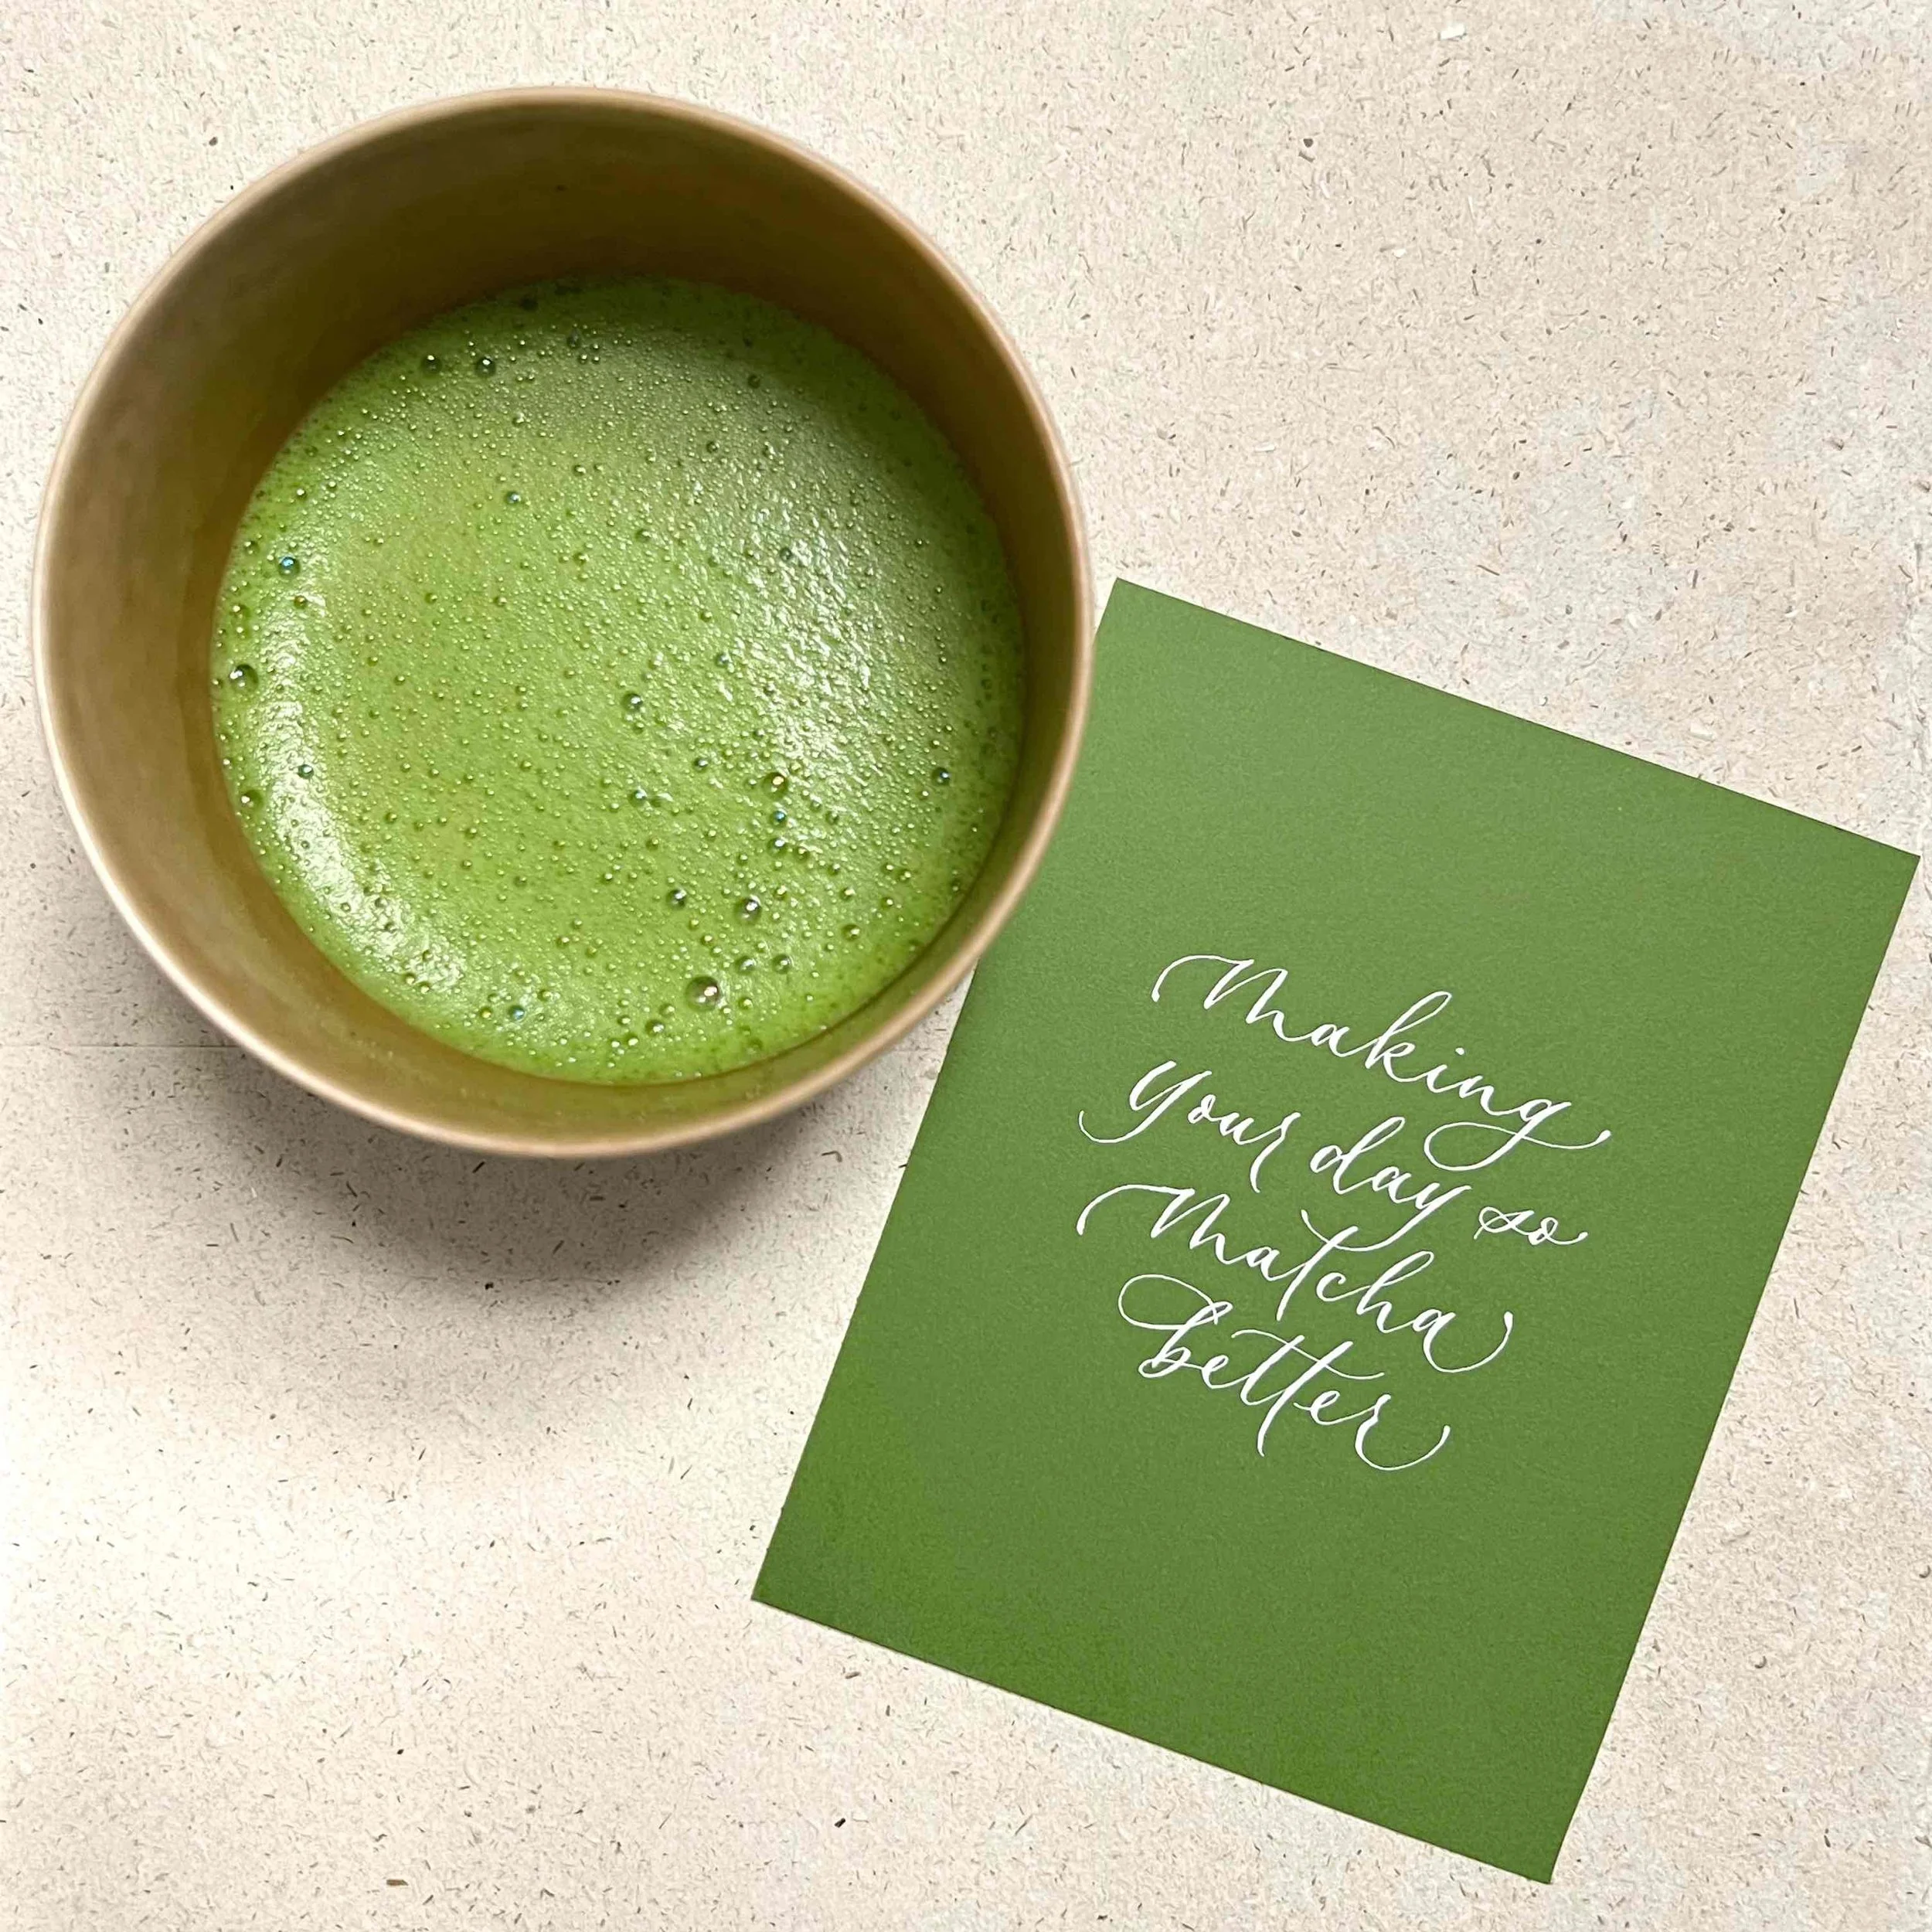 Making
your day so
Matcha
better